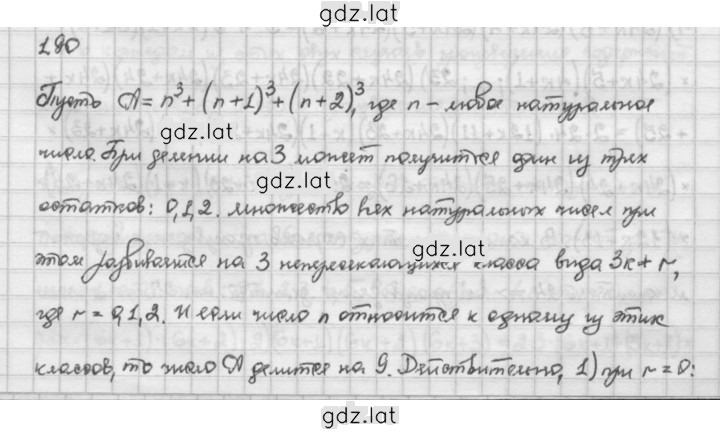 gdz.lat
180
Пусть A = n³ + (n+1)³ + (n+2)³, где n – любое натуральное
gdz.lat
число. При делении на 3 может получится один из трех
gdz.lat
остатков: 0,1,2. Множество всех натуральных чисел при
gdz.lat
этом разбивается на 3 непересекающихся класса вида 3k + r,
где r = 0,1,2. И если число n относится к одному из этих
gdz.lat
классов, то число A делится на 9. Действительно, 1) при r = 0:
gdz.lat